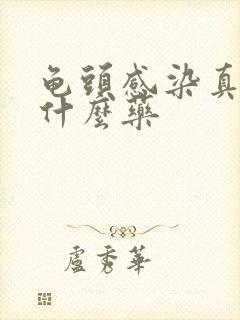 龟頭感染真
什麼藥
盧秀華